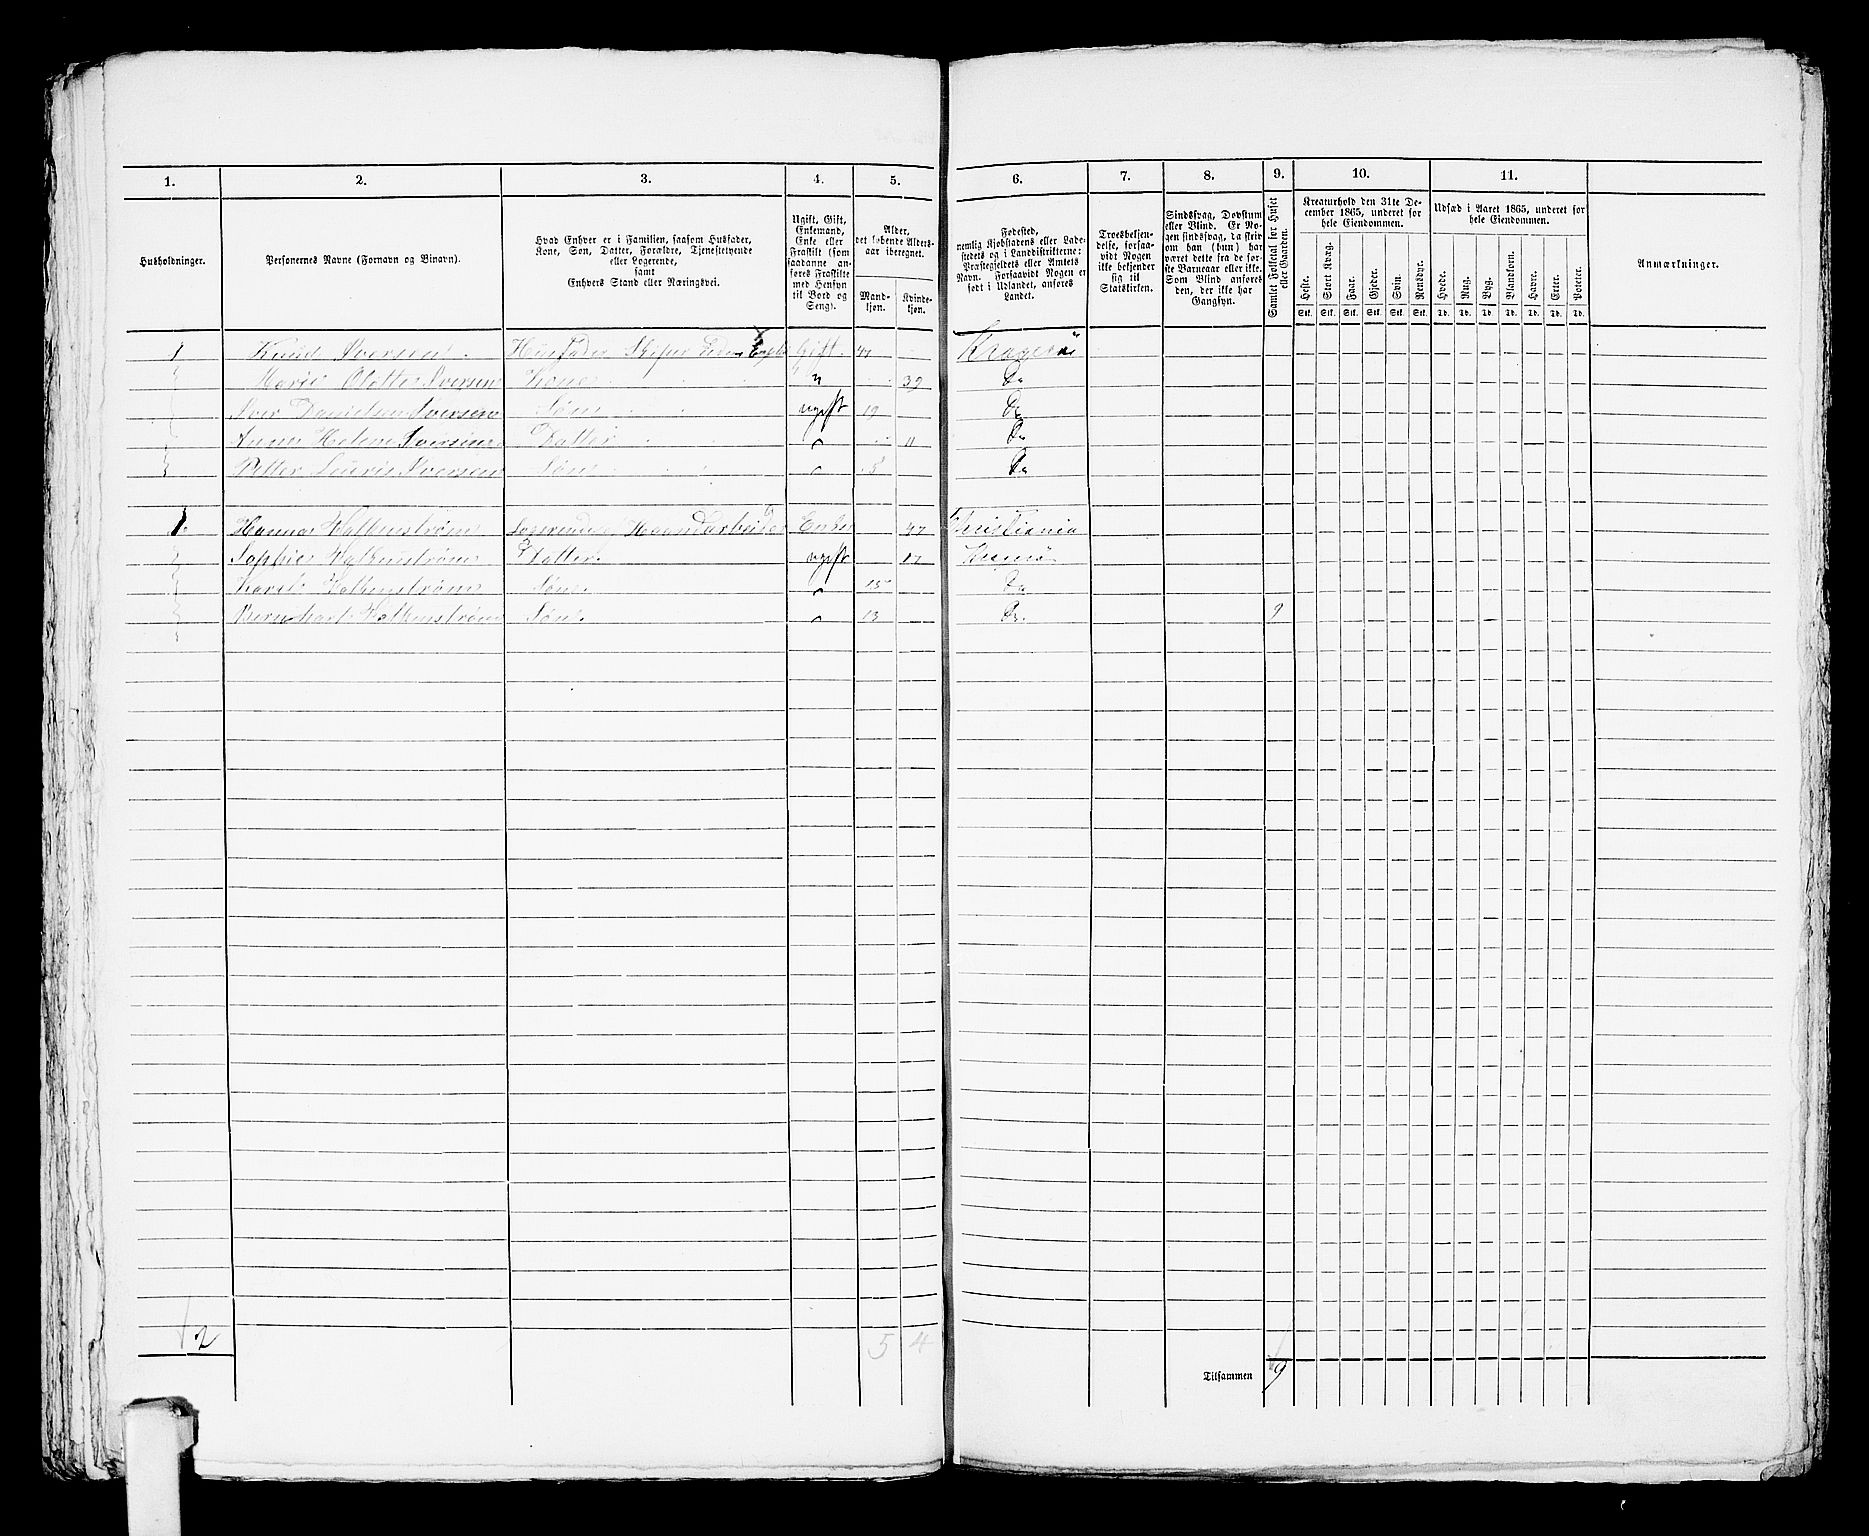 1. 2. 3. 4. 5. 6. 7. 8. 9. 10. 11.
Husholdninger.
Personernes Navne (Fornavn og Binavn).
Hvad Enhver er i Familien, saasom Husfader,
Kone, Søn, Datter, Forældre, Tjenestetyende
eller Logerende,
samt
Enhvers Stand eller Næringsvei.
Ugift, Gift,
Enkemand,
Enke eller
Fraskilt (som
saadanne an-
føres Fraskilte
med Hensyn
til Bord og
Seng).
Alder,
det løbende Alders-
aar iberegnet.
Mand-
kjøn.
Kvinde-
kjøn.
Fødested,
nemlig Kjøbstadens eller Lade-
stedets og i Landdistrikterne:
Præstegjeldets eller Amtets
Navn. Forsaavidt Nogen er
født i Udlandet, anføres
Landet.
Troesbekjen-
delse, forsaa-
vidt Nogen
ikke bekjender
sig til
Statskirken.
Sindssvag, Døvstum
eller Blind. Er No-
gen sindssvag, da skriv
om han (hun) har
været dette fra de før-
ste Barneaar eller ikke.
Som Blind anføres
den, der ikke har
Gangsyn.
Samlet Folketal for Huset
eller Gaarden.
Kreaturhold den 31te De-
cember 1865, underet for
hele Eiendommen.
Heste. Stort Kvæg. Faar. Gjeder. Svin. Rensdyr.
Stk. Stk. Stk. Stk. Stk. Stk.
Udsæd i Aaret 1865, underet for
hele Eiendommen.
Hvede. Rug. Byg. Blandkorn. Havre. Erter. Poteter.
Td. Td. Td. Td. Td. Td. Td.
Anmærkninger.
1 Knud Iversen Husfader Skiper Gift 47 Kragerø
Marie Iversen Kone " 39 Do
Iver Danielsen Iversen Søn ugift 19 Do
Anne Helene Iversen Datter " 11 Do
Petter Iversen Søn " 5 Do
1. Hanna Falkenstrøm Logerende Haandarbeider Enke 47 Christiania
Sophie Falkenstrøm Datter. ugift 17 Kragerø
Falkenstrøm Søn. " 15 Do
Falkenstrøm Søn. " 13 Do. 9
2 5 4
Tilsammen 9